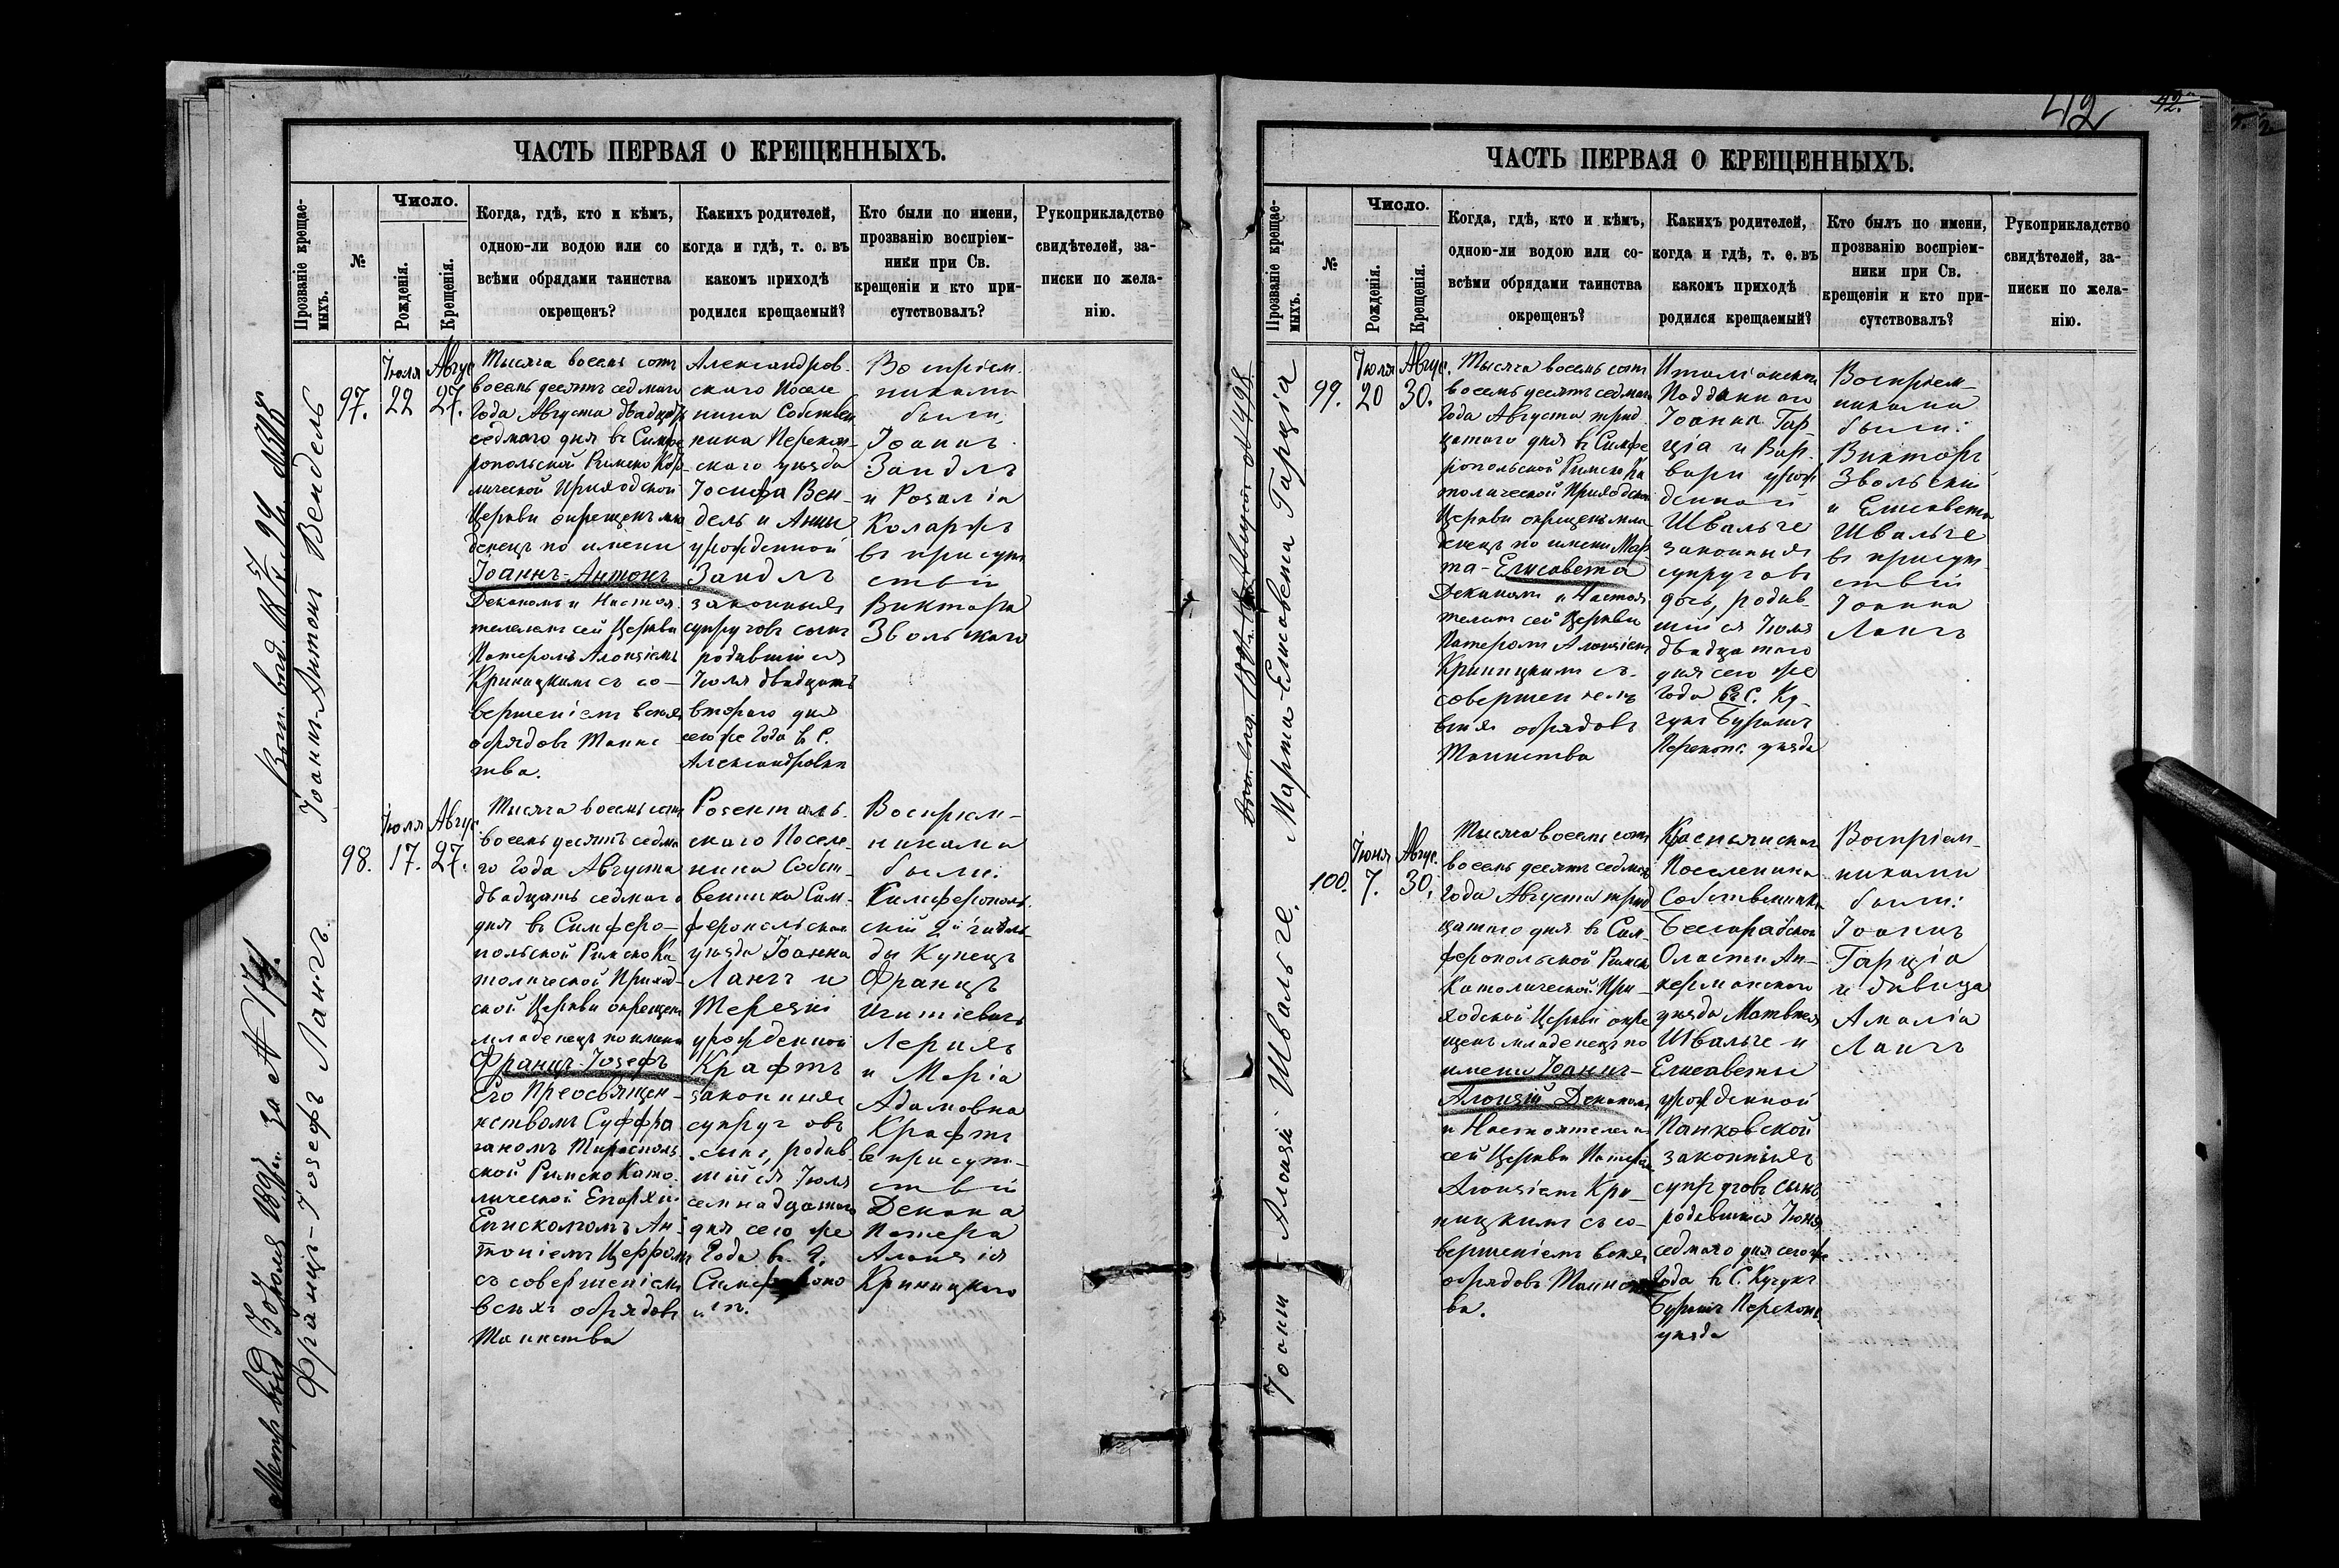 42
42.
ЧАСТЬ ПЕРВАЯ О КРЕЩЕННЫХЪ.
Прозваніе крещае-
мыхъ.
№
Число.
Рожденія.
Крещенія.
Когда, гдѣ, кто и кѣмъ,
одною-ли водою или со
всѣми обрядами таинства
окрещенъ?
Какихъ родителей,
когда и гдѣ, т. е. въ
какомъ приходѣ
родился крещаемый?
Кто были по имени,
прозванію воспріем-
ники при Св.
крещеніи и кто при-
сутствовалъ?
Рукоприкладство
свидѣтелей, за-
писки по жела-
нію.
Іоаннъ-Антонъ Вендель
97.
Іюля
22
Авгус.
27.
Тысяча восемь сотъ
восемьдесятъ седмаго
Года Августа двадцать
седмаго дня въ Симфе
ропольской Римско Като
лической Приходской
Церкви окрещенъ мла
денецъ по имени
Іоаннъ-Антонъ
Деканомъ и Настоя
телемъ сей Церкви
Патеромъ Алоизіемъ
Криницкимъ съ со-
вершеніемъ всѣхъ
обрядовъ Таинс
тва.
Александров-
скаго Поселе
нина Собствен
ника Перекоп-
скаго уѣзда
Іосифа Вен-
дель и Анны
урожденной
Зандлъ
законныхъ
супруговъ сынъ
родившійся
Іюля двадцать
втораго дня
сего же Года въ С.
Александровкѣ
Воспріем-
никами
были
Іоаннъ
Зандлъ
и Розалія
Коларжъ
въ присут
ствіи
Виктора
Звольскаго
Метр выд 3 Іюля 1897 за № 174.
Францъ-Іозефъ Лангъ.
98.
Іюля
17.
Авгус.
27.
Тысяча восемь сотъ
восемьдесятъ седма
го Года Августа
двадцать седмаго
дня въ Симферо-
польской Римско Ка
толической Приход-
ской Церкви окрещенъ
младенецъ по имени
Францъ Іозефъ
Его Преосвящен-
нствомъ Суффра
ганомъ Тирасполь
ской Римско Като-
лической Епархіи
Епископомъ Ан-
тоніемъ Церромъ
съ совершеніемъ
всѣхъ обрядовъ
Таинства
Розенталь-
скаго Поселе-
нина Собст-
венника Сим-
феропольскаго
уѣзда Іоанна
Лангъ и
Терезіи
урожденной
Крафтъ
законныхъ
супруговъ
сынъ, родив-
шійся Іюля
семнадцатаго
дня сего же
Года въ Г.
Симферопо
лѣ.
Воспріем-
никами
были:
Симферополь
скій 2й гиль
ды Купецъ
Францъ
Игнтіевичъ
Лерихъ
и Марія
Адамовна
Крафтъ
въ присут-
ствіи
Декана
Патера
Алоизія
Криницкаго
ЧАСТЬ ПЕРВАЯ О КРЕЩЕННЫХЪ.
Прозваніе крещае-
мыхъ.
№
Число.
Рожденія.
Крещенія.
Когда, гдѣ, кто и кѣмъ,
одною-ли водою или со-
всѣми обрядами таинства
окрещенъ?
Какихъ родителей,
когда и гдѣ, т. е. въ
какомъ приходѣ
родился крещаемый?
Кто былъ по имени,
прозванію воспріем-
ники при Св.
крещеніи и кто при-
сутствовалъ?
Рукоприкладство
свидѣтелей, за-
писки по жела-
нію.
Марта-Елисавета Гарція
99.
Іюля
20
Авгус.
30.
Тысяча восемь сотъ
восемьдесятъ седмаго
Года Августа трид
цатаго дня въ Симфе
ропольской Римско Ка
толической Приходской
Церкви окрещенъ мла
денецъ по имени Мар
та-Елисавета
Деканомъ и Настоя
телемъ сей Церкви
Патеромъ Алоизіемъ
Криницкимъ съ
совершеніемъ
всѣхъ обрядовъ
Таинства
Италіанскаго
Подданнаго
Іоанна Гар
ція и Вар-
вары урож
денной
Швальге
законныхъ
супруговъ
дочь, родив-
шійся Іюля
двадцатаго
дня сего же
Года въ С. Ку-
чукъ Бурашъ
Перекопс. уѣзда
Воспріем-
никами
были:
Викторъ
Звольскій
и Елисавета
Швальге
въ присут
ствіи
Іоанна
Лангъ
Іоаннъ-Алоизій Швальге.
100.
Іюня
7.
Авгус.
30.
Тысяча восемь сотъ
восемьдесятъ седмаго
Года Августа трид
цатаго дня въ Сим-
феропольской Римско
Католической При-
ходской Церкви окре
щенъ младенецъ по
имени Іоаннъ-
Алоизій Деканомъ
и Настоятелемъ
сей Церкви Патеромъ
Алоизіемъ Кри-
ницкимъ съ со-
вершеніемъ всѣхъ
обрядовъ Таинст
ва.
Поселенина
Собственника
Бессарабской
Области Ак-
керманскаго
уѣзда Матвѣя
Швальге и
Елисаветы
урожденной
Панковской
законныхъ
супруговъ сынъ,
родившійся Іюня
седмаго дня сего же
Года въ С. Кучукъ
Бурашъ Перекопс.
уѣзда
Воспріем-
никами
были:
Іоаннъ
Гарція
и дѣвица
Амалія
Лангъ